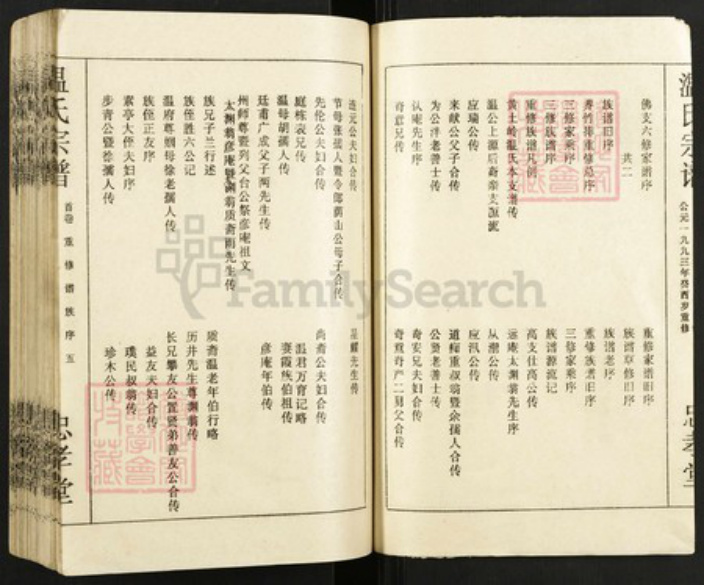 温氏宗谱
公元一九九三年癸酉岁重修
忠孝堂
佛支六修家谱序
其二
重修家谱旧序
族谱草修旧序
族谱旧序
族谱老序
养性排重修总序
重修族者旧序
三修家乘序
三修家乘序
三修族谱序
族谱源流记
重修族谱凡例
高支仕高公传
黄土岭温氏本支谱传
远庵太渊翁先生序
温公上源后裔亲支源流
从潮公传
应瑞公传
应汛公传
来献公父子合传
道痴重叔翁暨余孺人合传
为公泮老善士传
公贤老善士传
认庵先生序
奇安兄夫妇合传
奇意兄传
奇重奇严二舅父合传
连元公夫妇合传
星耀先生传
节母张孺人暨令郎荫山公母子合传
先伦公夫妇合传
尚斋公夫妇合传
庭栋宸兄传
温君万育记略
温母胡孺人传
寿霞族伯祖传
廷甫广成父子两先生传
彦庵年伯传
州师尊暨列父台公祭彦庵祖文
太渊翁彦庵暨渊翁质斋两先生传
族兄子兰行述
质斋温老年伯行略
族侄胜六公记
历井先生尊渊翁传
温府尊姻母徐老孺人传
长兄攀友公置暨弟善友公合传
族侄正友序
益友夫妇合传
素亭大侄夫妇序
璞民叔翁传
步青公暨徐孺人传
珍木公传
温氏宗谱
首卷 重修谱族序 五
忠孝堂
FamilySearch